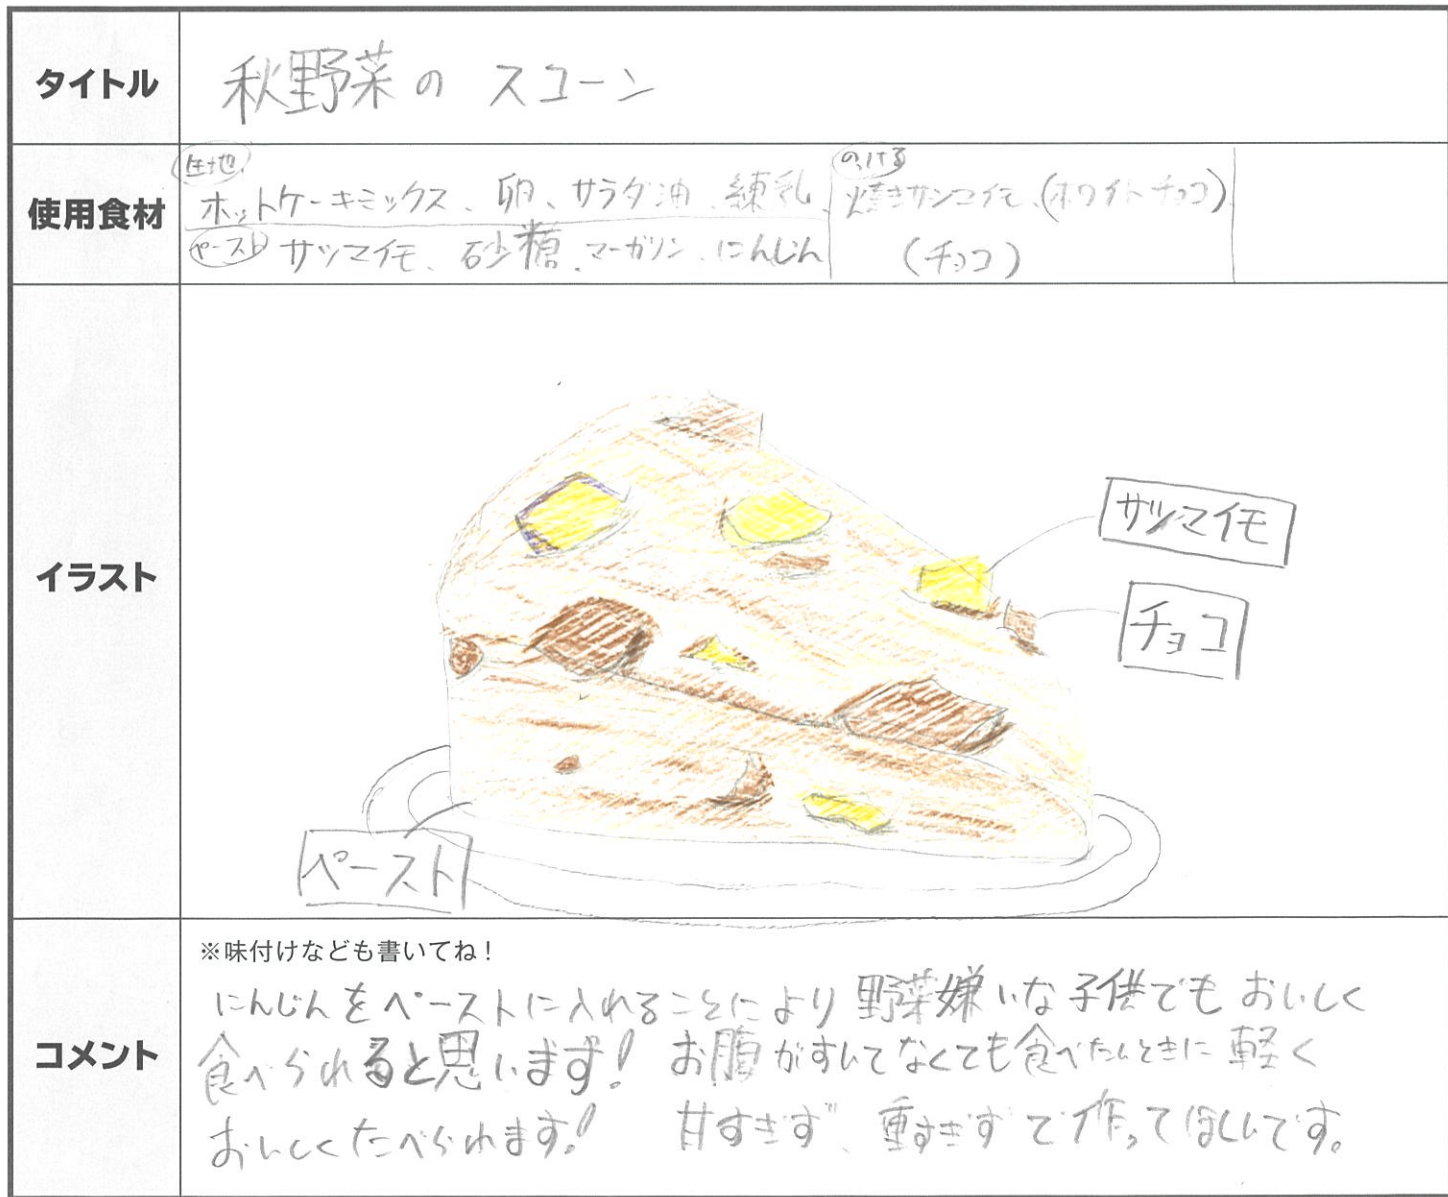 タイトル
秋野菜の スコーン
使用食材
生地
ホットケーキミックス、卵、サラダ油、練乳
ペースト サツマイモ、砂糖、マーガリン、にんじん
のっける
焼きサツマイモ、(ホワイトチョコ)
(チョコ)
イラスト
サツマイモ
チョコ
ペースト
コメント
※味付けなども書いてね!
にんじんをペーストに入れることにより野菜嫌いな子供でもおいしく
食べられると思います! お腹がすいてなくても食べたいときに軽く
おいしくたべられます! 甘すぎず、重すぎずで作ってほしいです。